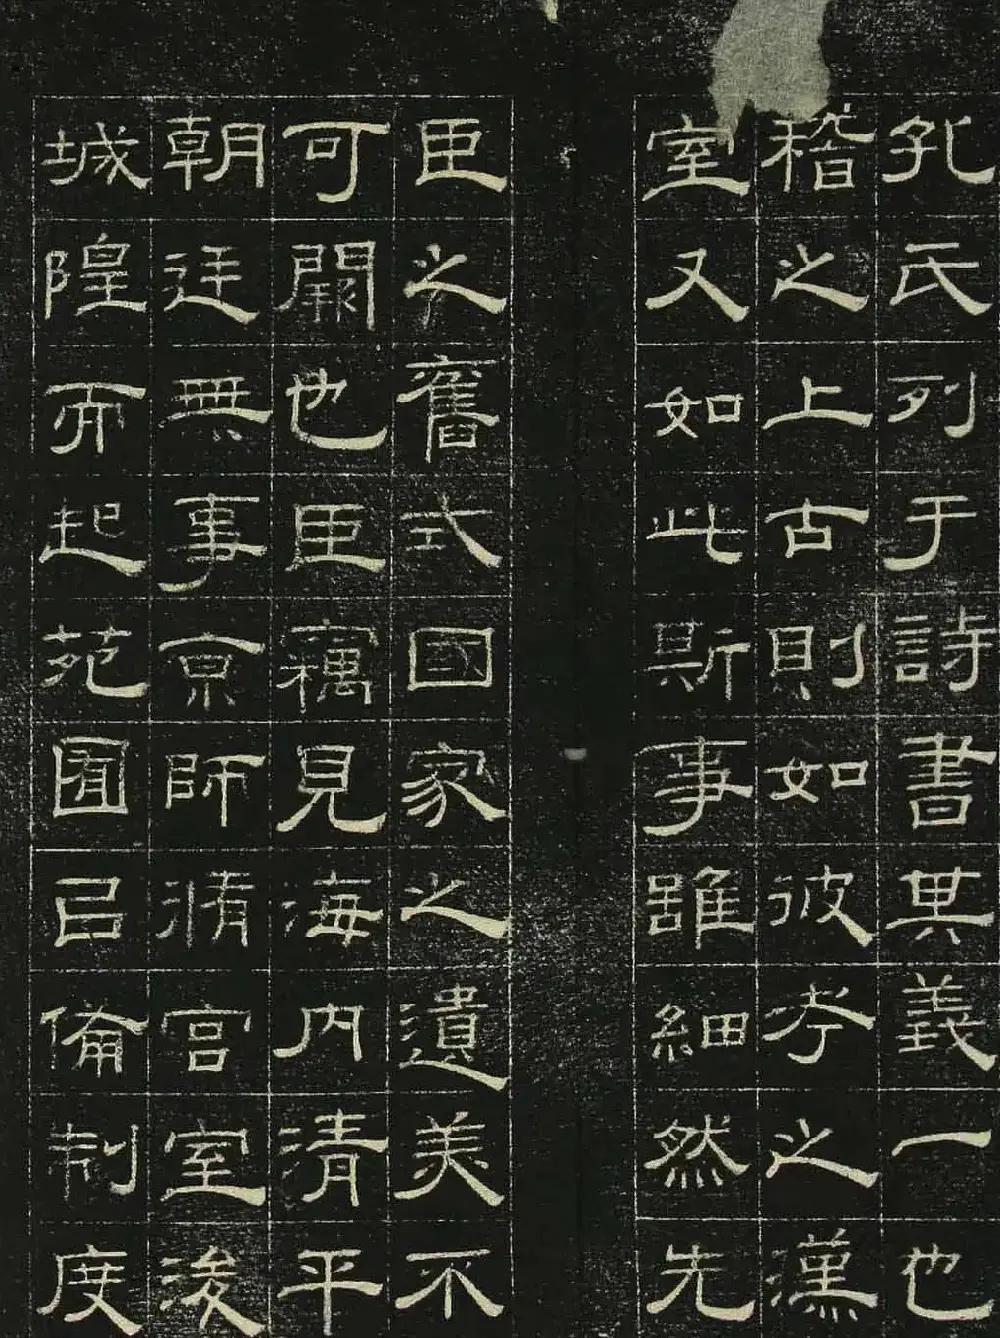 孔氏列于詩書其義一也
稽之上古則如彼考之漢
室又如此斯事雖細然先
臣之舊式國家之遺美不
可闕也臣竊見海內清平
朝廷無事京師脩宮室浚
城隍而起苑囿㠯備制度